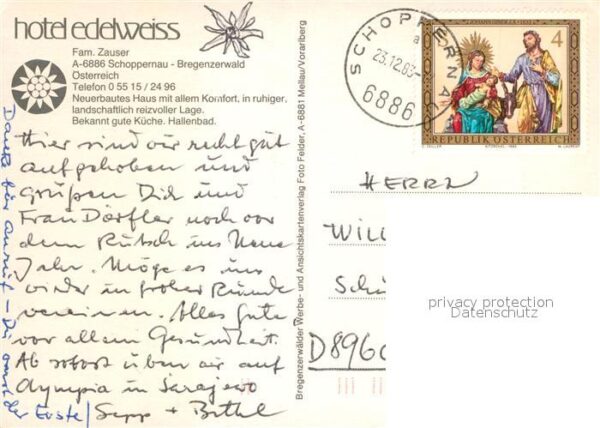 hotel edelweiss
Fam. Zauser
A-6886 Schoppernau - Bregenzerwald
Österreich
Telefon 0 55 15 / 24 96
Neuerbautes Haus mit allem Komfort, in ruhiger,
landschaftlich reizvoller Lage.
Bekannt gute Küche. Hallenbad.
Hier sind wir recht gut
aufgehoben und
grüßen Dich und
Frau Dörfler noch vor
dem Rutsch ins Neue
Jahr. Möge es uns
wieder in froher Runde
vereinen. Alles Gute
vor allem Gesundheit.
Ab sofort üben wir auf
Olympia in Sarajewo
Sepp +
Danke für Anruf – Du warst der Erste /
Bregenzerwälder Werbe- und Ansichtskartenverlag Foto Felder, A-6881 Mellau/Vorarlberg
SCHOPPERNAU
a
23.12.83
6886
S 4
REPUBLIK ÖSTERREICH
HERRN
Will
Schü
D896
privacy protection
Datenschutz